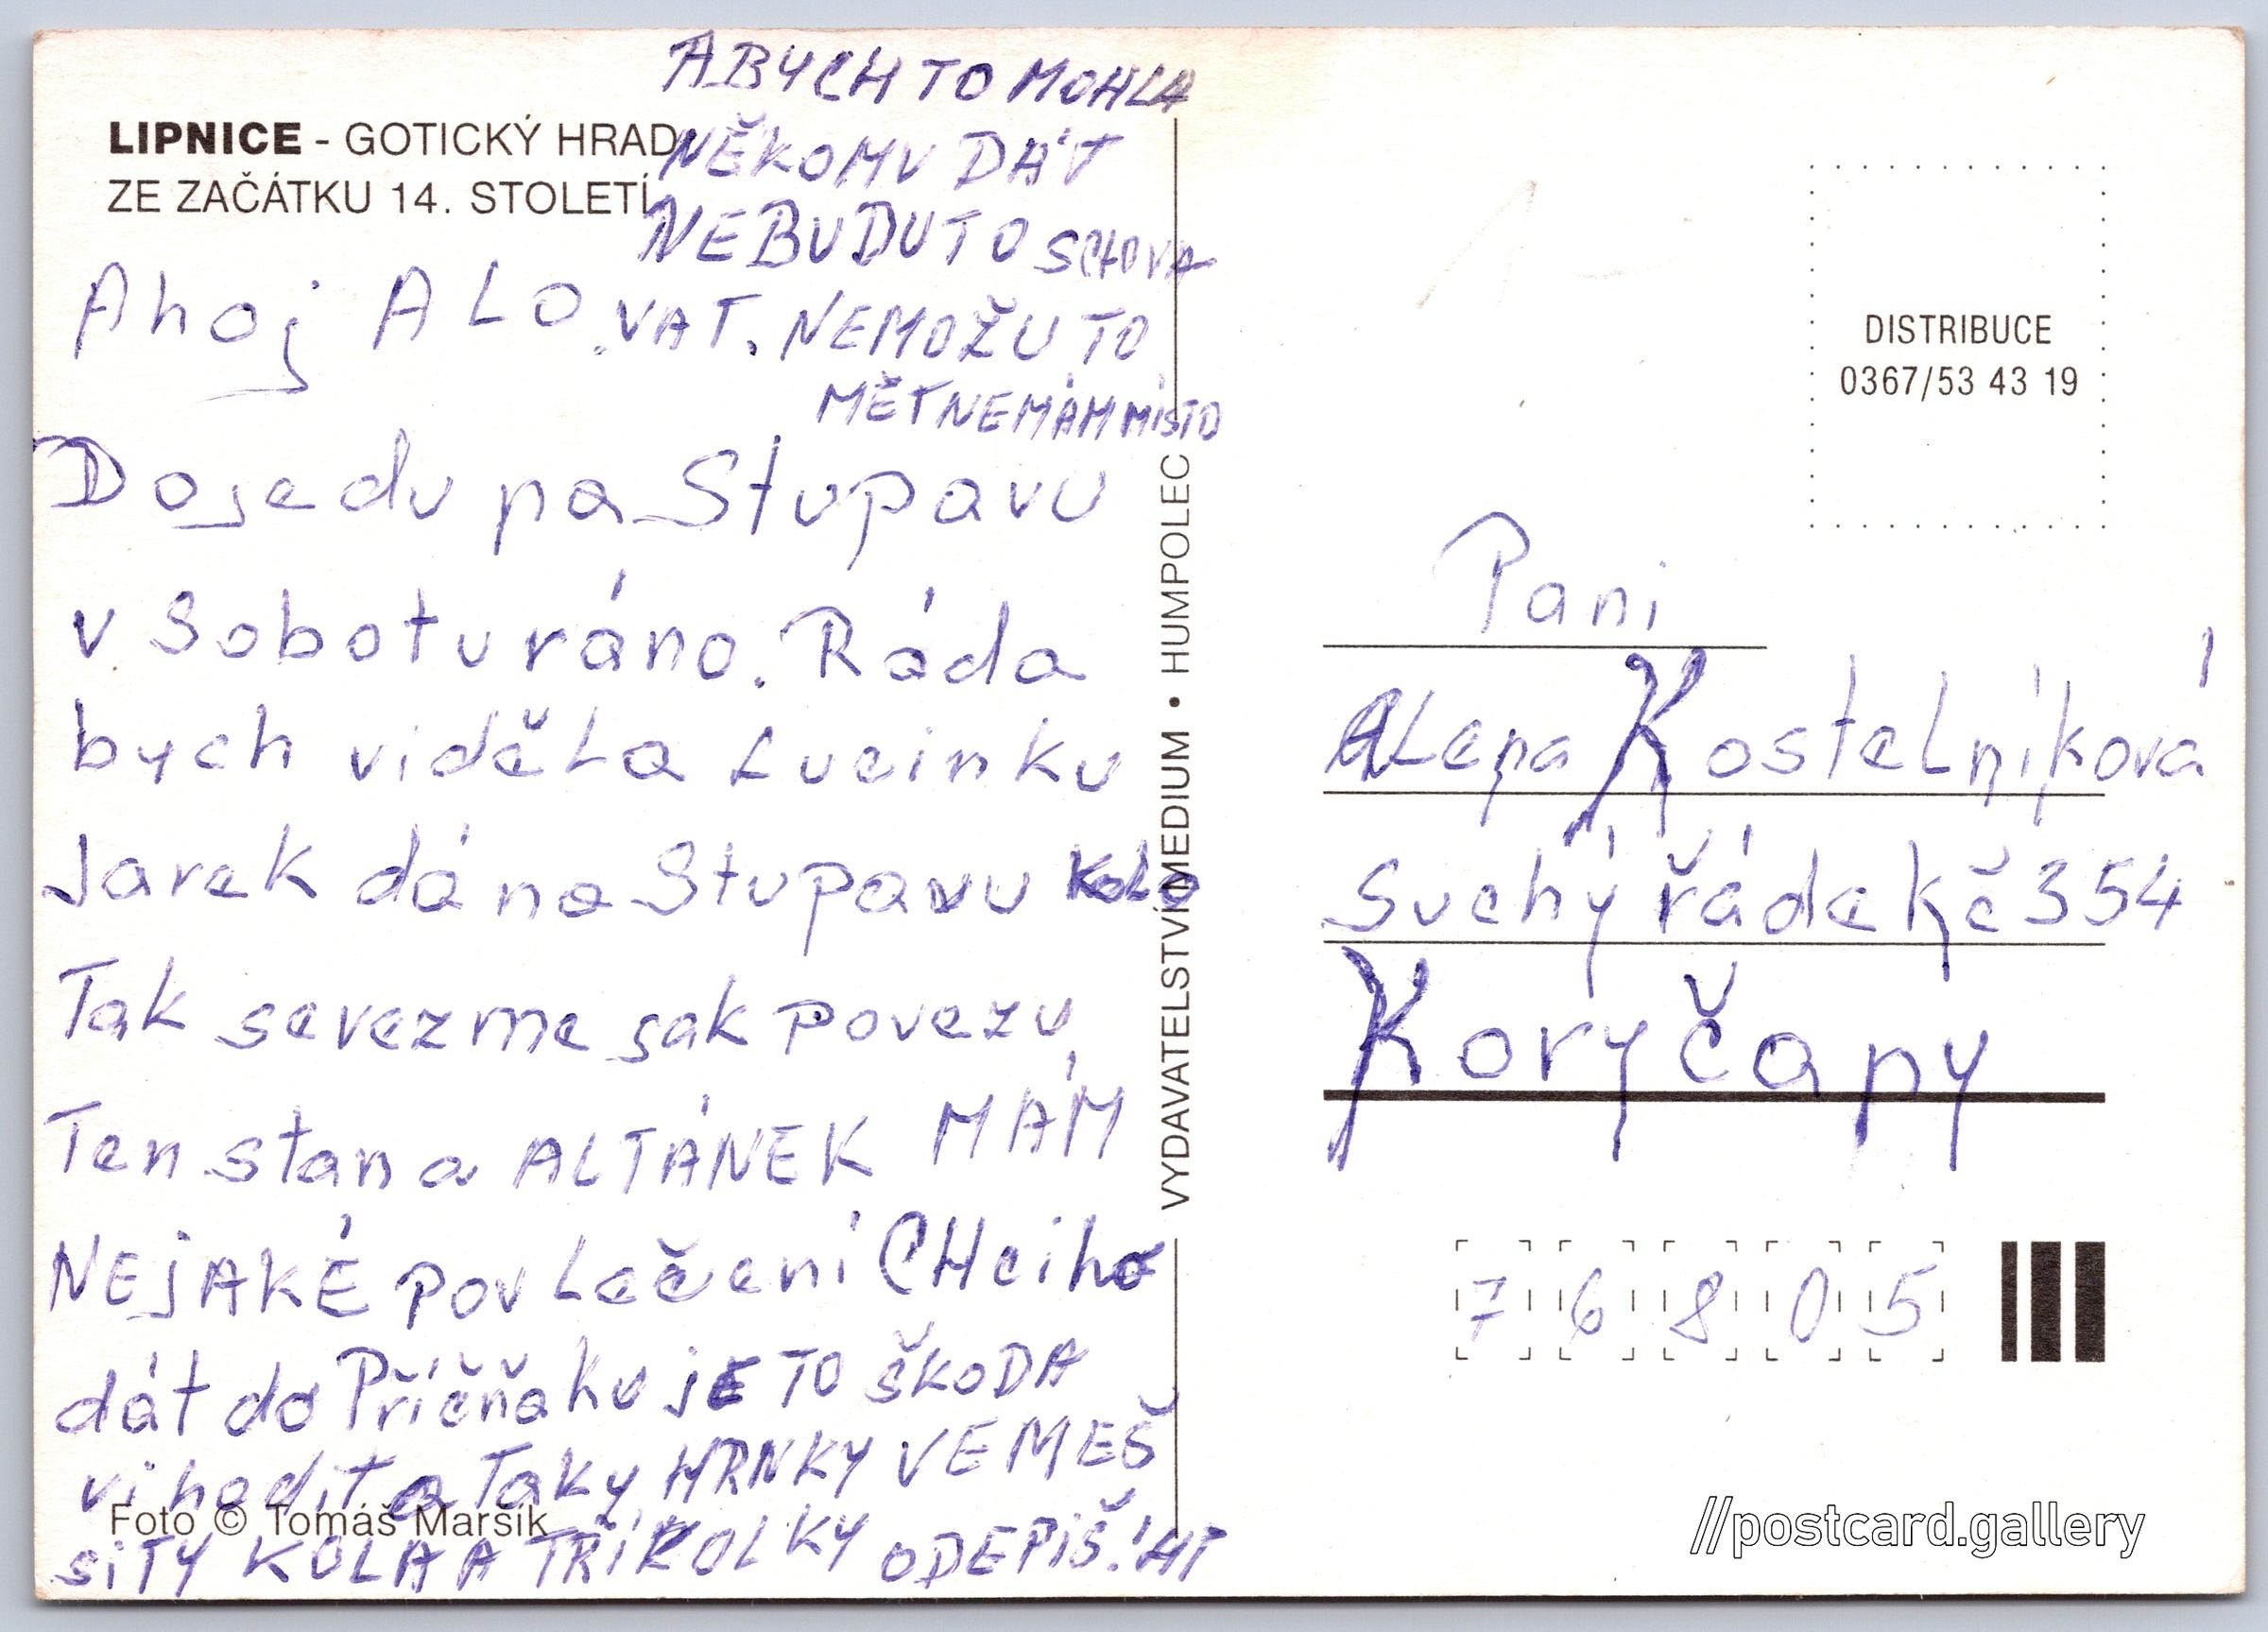 LIPNICE - GOTICKÝ HRAD
ZE ZAČÁTKU 14. STOLETÍ
Ahoj ALO.
Dojedu na Stupavu
v Sobotu ráno. Ráda
bych viděla Lucinku
Jarek dá na Stupavu kolo
Tak se vezme jak povezu
Ten stan a ALTÁNEK MÁM
NEJAKÉ povLečení CHci ho
dát do Příčňaku jE TO ŠKODA
vi hodit a Taky HRNKY VEMEŠ
SiTY KOLA A TŘÍKOLKY ODEPIŠ! HT
ABYCH TO MOHLA
NĚKOMU DÁT
NEBUDU TO SCHOVA
VAT. NEMOŽU TO
MĚT NEMÁM MÍSTO
Foto © Tomáš Maršík
VYDAVATELSTVÍ MEDIUM • HUMPOLEC
DISTRIBUCE
0367/53 43 19
Pani
ALena KosteLníková
Suchý řádek č 354
Koryčany
76805
//postcard.gallery